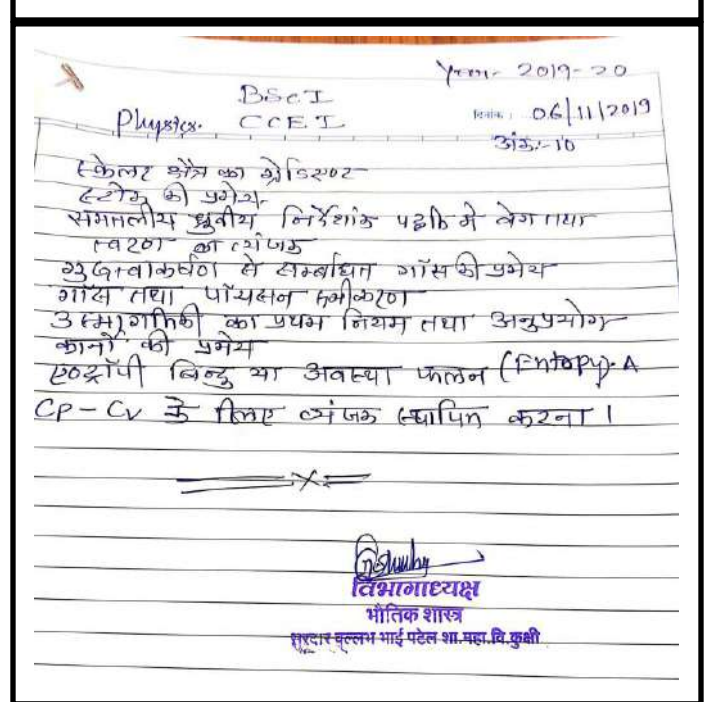 Year- 2019-20
BSc I
Physics. CCE I
दिनांक : 06/11/2019
अंक:-10
स्केलर क्षेत्र का ग्रेडिएण्ट
स्टोक की प्रमेय
समतलीय ध्रुवीय निर्देशांक पद्धति में वेग तथा
त्वरण का व्यंजक
गुरुत्वाकर्षण से सम्बंधित गॉस की प्रमेय
गॉस तथा पॉयसन समीकरण
उष्मागतिकी का प्रथम नियम तथा अनुप्रयोग
कार्नो की प्रमेय
एण्ट्रॉपी बिन्दु या अवस्था फलन (Entopy). A
CP - Cv के लिए व्यंजक स्थापित करना ।
विभागाध्यक्ष
भौतिक शास्त्र
सरदार वल्लभ भाई पटेल शा.महा.वि.कुक्षी